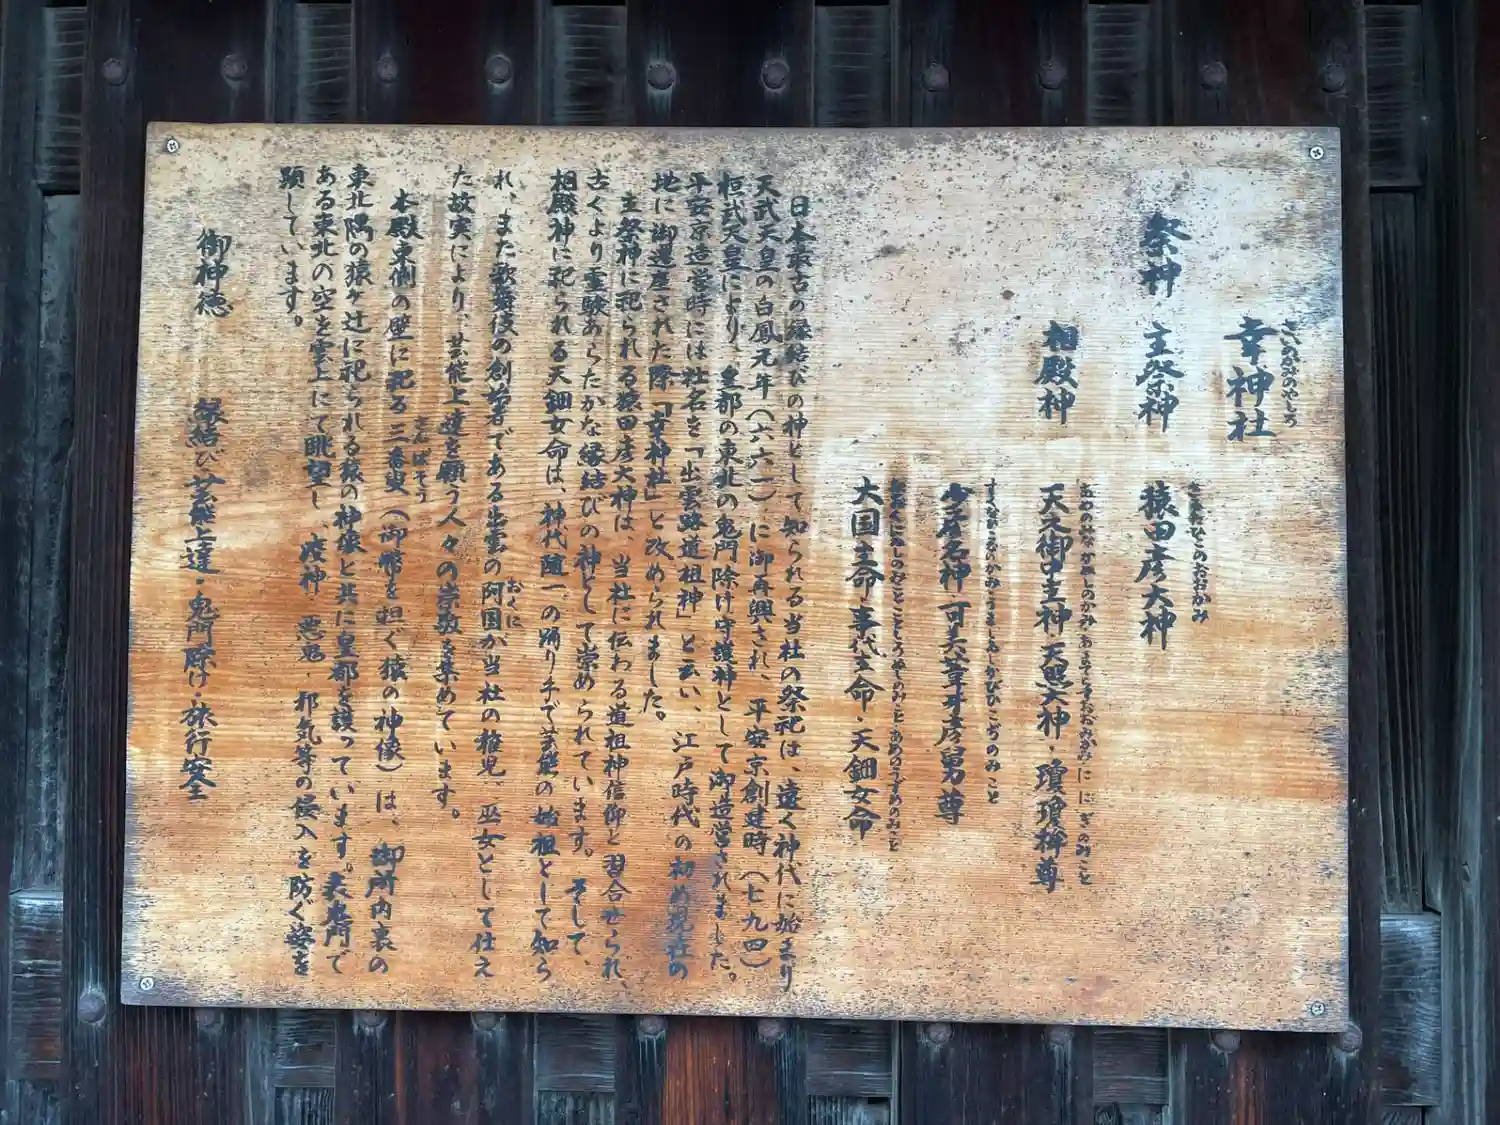 さいのかみのやしろ
幸神社
祭神 主祭神 猿田彦大神
さるたひこのおおかみ
相殿神 天之御中主神・天照大神・瓊瓊杵尊
あめのみなかぬしのかみ あまてらすおおみかみ ににぎのみこと
少名彦名神・可美葦牙彦舅尊
すくなひこなのかみ うましあしかびひこぢのみこと
大国主命・事代主命・天鈿女命
おおくにぬしのみこと ことしろぬしのみこと あめのうずめのみこと
日本最古の縁結びの神として知られる当社の祭祀は、遠く神代に始まり
天武天皇の白鳳元年(六六一)に御再興され、平安京創建時(七九四)
桓武天皇により、皇都の東北の鬼門除け守護神として御造営されました。
平安京造営時には社名を「出雲路道祖神」と云い、江戸時代の初め現在の
地に御遷座された際「幸神社」と改められました。
主祭神に祀られる猿田彦大神は、当社に伝わる道祖神信仰と習合せられ、
古くより霊験あらたかな縁結びの神として崇められています。そして、
相殿神に祀られる天鈿女命は、神代随一の踊り手で芸能の始祖として知ら
れ、また歌舞伎の創始者である出雲の阿国が当社の稚児、巫女として仕え
おくに
た故実により、芸能上達を願う人々の崇敬を集めています。
本殿東側の壁に祀る三番叟(御幣を担ぐ猿の神像)は、御所内裏の
さんばそう
東北隅の猿ヶ辻に祀られる猿の神像と共に皇都を護っています。表鬼門で
ある東北の空を雲上にて眺望し、疫神、悪鬼、邪気等の侵入を防ぐ姿を
顕しています。
御神徳 縁結び・芸能上達・鬼門除け・旅行安全